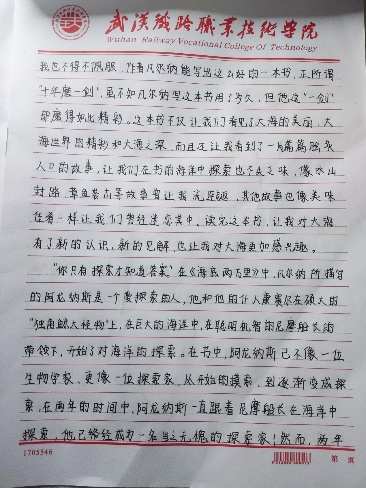 武汉铁路职业技术学院
Wuhan Railway Vocational College Of Technology
我也不得不佩服，作者凡尔纳能写出这么好的一本书，正所谓
“十年磨一剑”，虽不知凡尔纳写这本书用了多久，但他这“一剑”
却磨得如此精彩。这本书不仅让我们看见了大海的美丽，大
海世界的精彩和大海之深，而且还让我看到了一片篇篇
人口的故事，让我们在书的海洋中探索也不乏乏味，像冰山
封路，章鱼袭击等故事皆让我流连，其他故事也像美味
佳肴一样让我们曾经迷恋其中，读完这本书，让我对大海
有了新的认识，新的见解，也让我对大海更加感兴趣。
“你只有探索才知道答案”在《海底两万里》中，凡尔纳所描写
的阿龙纳斯是一个爱探索的人，他和他的仆人康塞尔在硕大的
“独角鲸大怪物”上，在巨大的海洋中，在聪明机智的尼摩船长的
带领下，开始了对海洋的探索。在书中，阿龙纳斯已不像一位
生物学家，更像一位探索家，从开始的摸索，到逐渐变成探
索，在两年的时间中，阿龙纳斯一直跟着尼摩船长在海洋中
探索，他已然经成为一名当之无愧的探索家！然而，两年
1705546
第 页